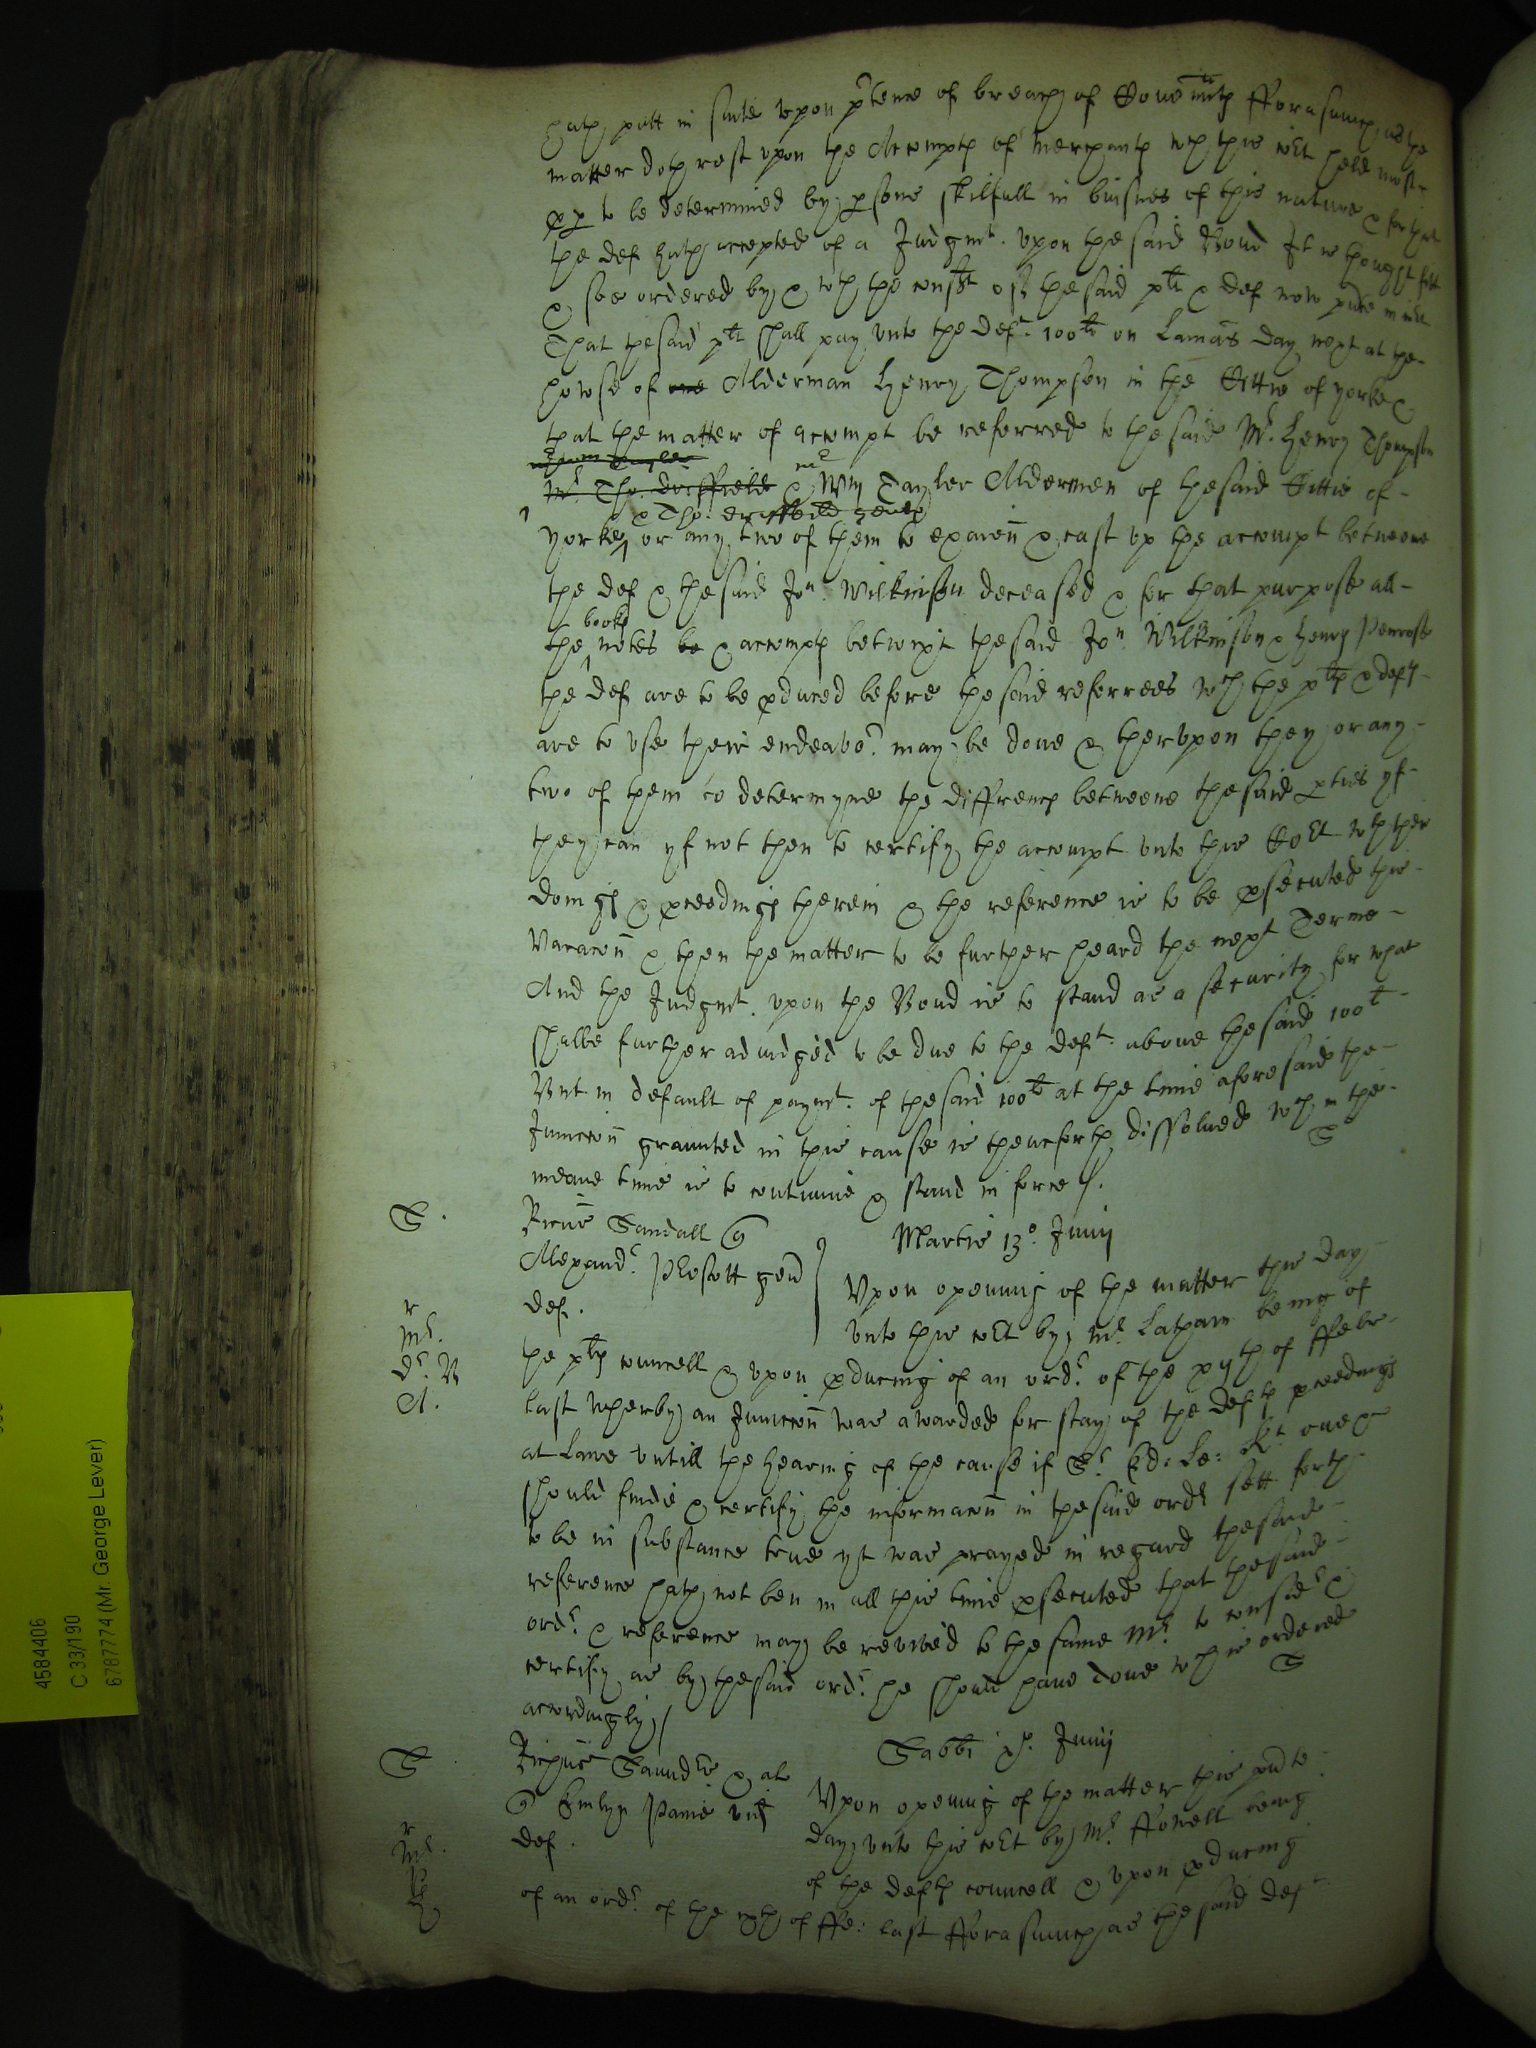 hath putt in suite upon p'tence of breach of Covenntes fforasmuch as the
matter doth rest upon the Accompts of Merchants wch this cort held most
pp to be determined by psons skilfull in buisnes of this nature & for that
the def hath accepted of a Judgmt. upon the said Bond It is thought fitt
& soe ordered by & wth the consent of the said plt & def now psente in cort
That the said plt shall pay unto the deft. 100li on Lamas day next at the
howse of one Alderman Henry Thompson in the Cittie of Yorke &
that the matter of accompt be referred to the said Mr. Henry Thompson
Mr. Tho: driffield & mr Wm Tayler Aldermen of the said Cittie of
& Tho: driffeild gent
Yorke, or any two of them to examin & cast up the accompt betweene
the def & the said Jon. Wilkinson deceased & for that purpose all
books
the notes be & accompts betwixt the said Jon. Wilkinson & Henry Penrose
the def are to be pduced before the said referrees wch the plts & defts
are to use their endeavor. may be done & therupon they or any
two of them to determyne the diffrences betweene the said pties yf
they can yf not then to certify the accompt unto this Cort wth ther
doings & pceedings therein & the reference is to be psecuted this
Vacacon & then the matter to be further heard the next Terme
And the Judgmt. upon the Bond is to stand as a security for what
shalbe further adiudged to be due to the deft. above the said 100li
But in default of paymt. of the said 100li at the time aforesaid the
Junccon graunted in this cause is thenceforth dissolved wch in the
meane time is to continue & stand in force /.
S
S.
Ricus Sandall Q
Martis 13o. Junij
Alexandr. Plesott gen
def.
Upon opening of the matter this day
unto this cort by mr Latham being of
r
Mr.
Dr. B
A.
the plts councell & upon pducing of an ordr. of the xijth of ffebr
last wherby an Junccon was awarded for stay of the defts pceedings
at Lawe untill the hearing of the cause if Sr. Ed: Le: Kt. one &
should finde & certify the informacon in the said ordr sett forth
to be in substance true yt was prayed in regard the said
reference hath not ben in all this time psecuted that the said
ordr. & reference may be revived to the same Mr. to consider &
certify as by the said ordr. he should have done wch is ordered
accordingly /
S
S
Richus Saundrs & al
Sabbi xo. Junij
Q Emlyn Paine vid
def.
Upon opening of the matter this pnte
day unto this cort by Mr. ffowell being
of the defts councell & upon pducing
r
Mr.
of an ordr. of the xth of ffe: last fforasmuch as the said def
4584406
C 33/190
6787774 (Mr. George Lever)